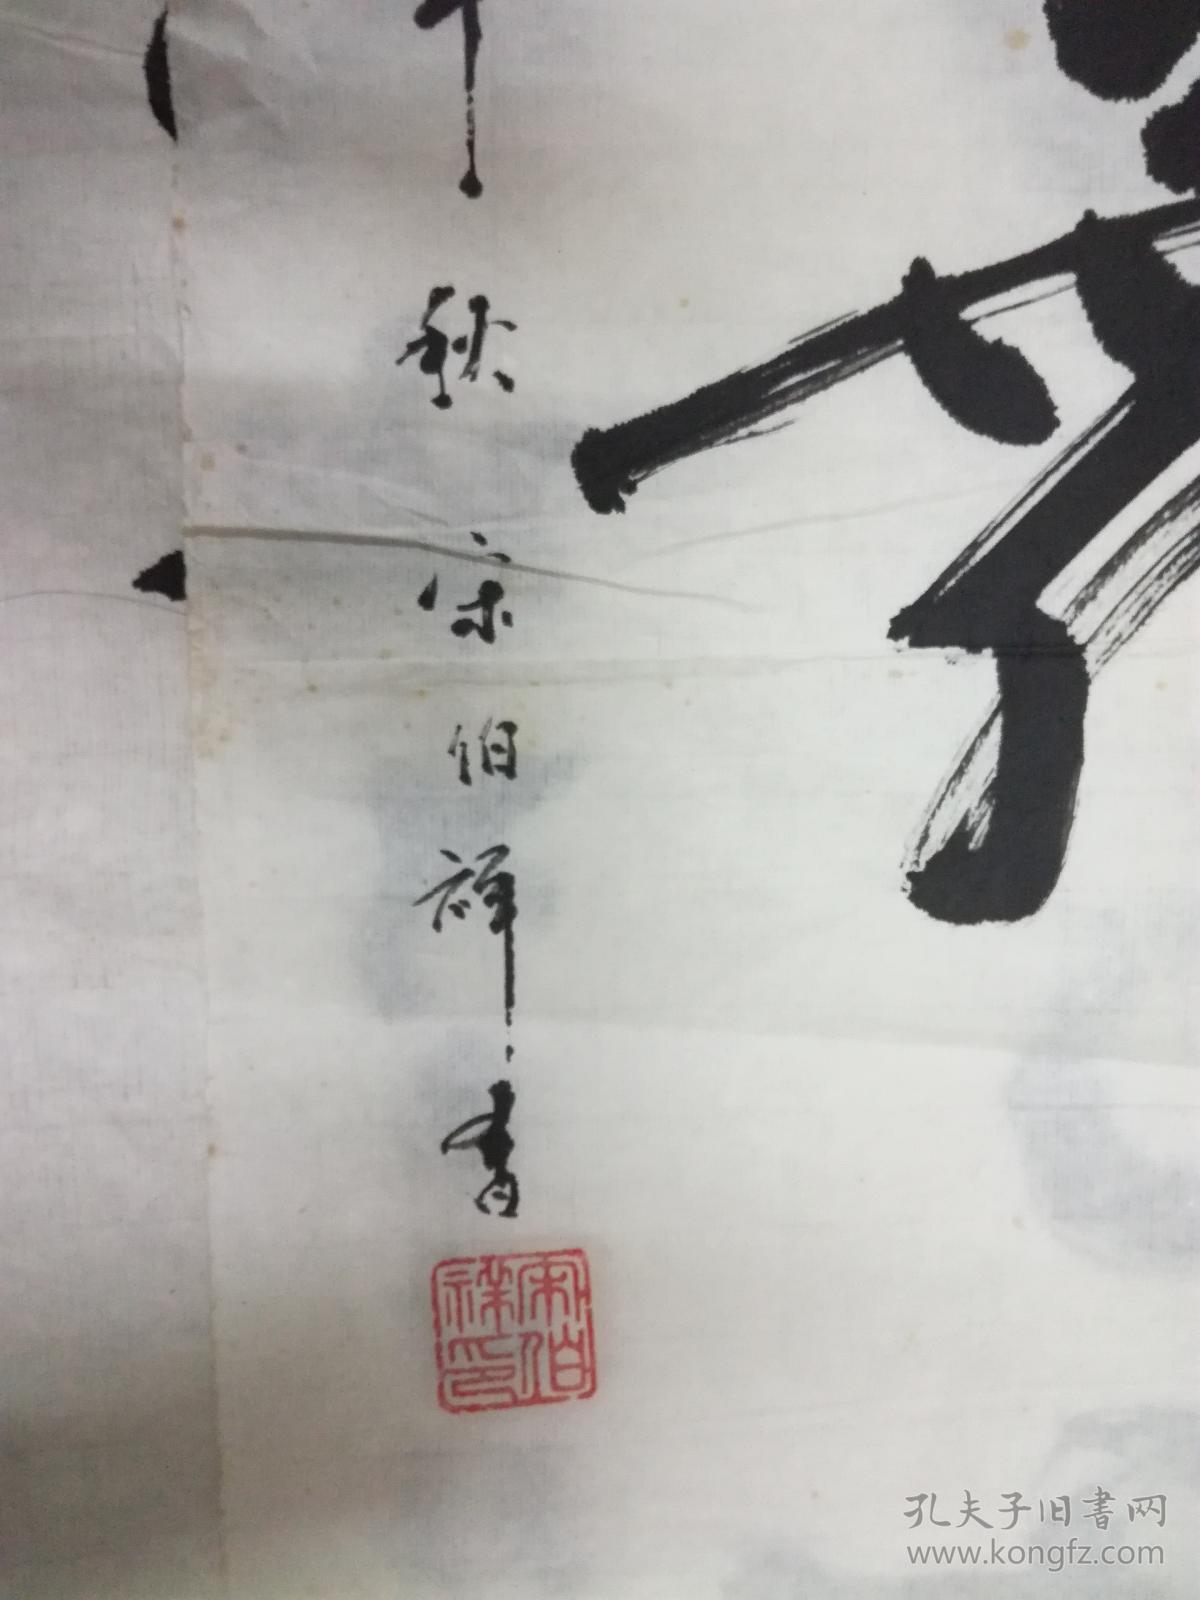 秋宋伯祥書
宋伯
祥印
孔夫子旧書网
www.kongfz.com